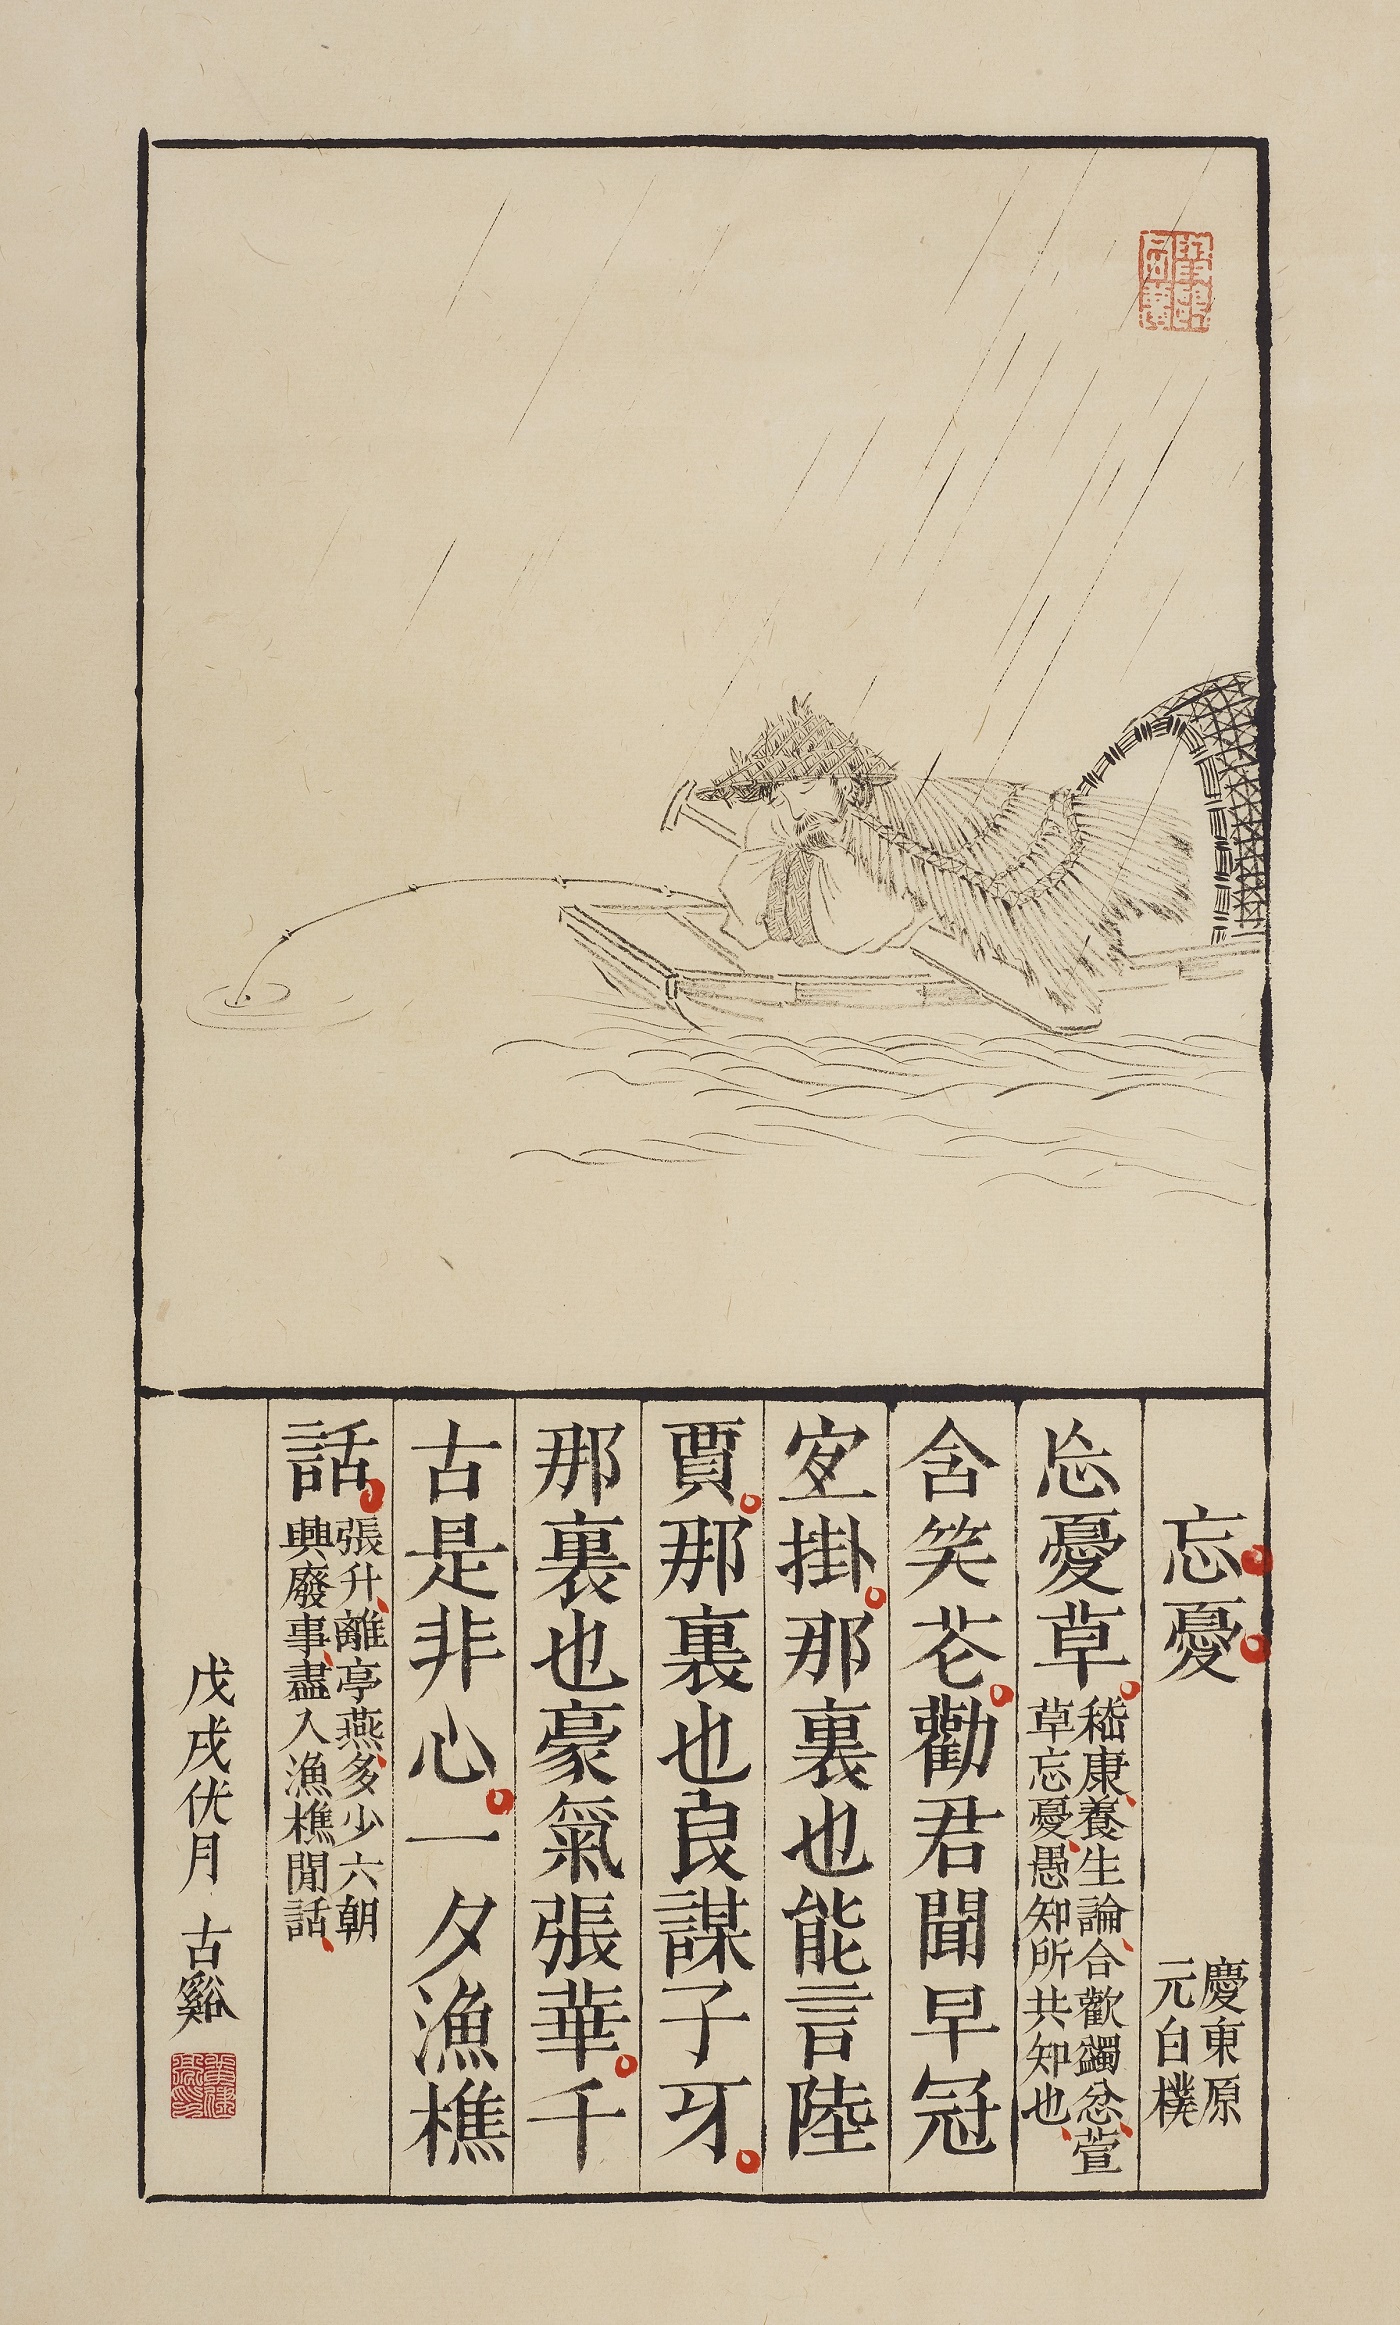 忘憂
慶東原
元白樸
忘憂草。
嵇康、養生論、合歡蠲忿、萱
草忘憂、愚知所共知也、
含笑芲。勸君聞早冠
宐掛。那裏也能言陸
賈。那裏也良謀子牙。
那裏也豪氣張華。千
古是非心。一夕漁樵
話。
張升、離亭燕、多少六朝
興廢事、盡入漁樵閒話、
戊戌伏月 古谿